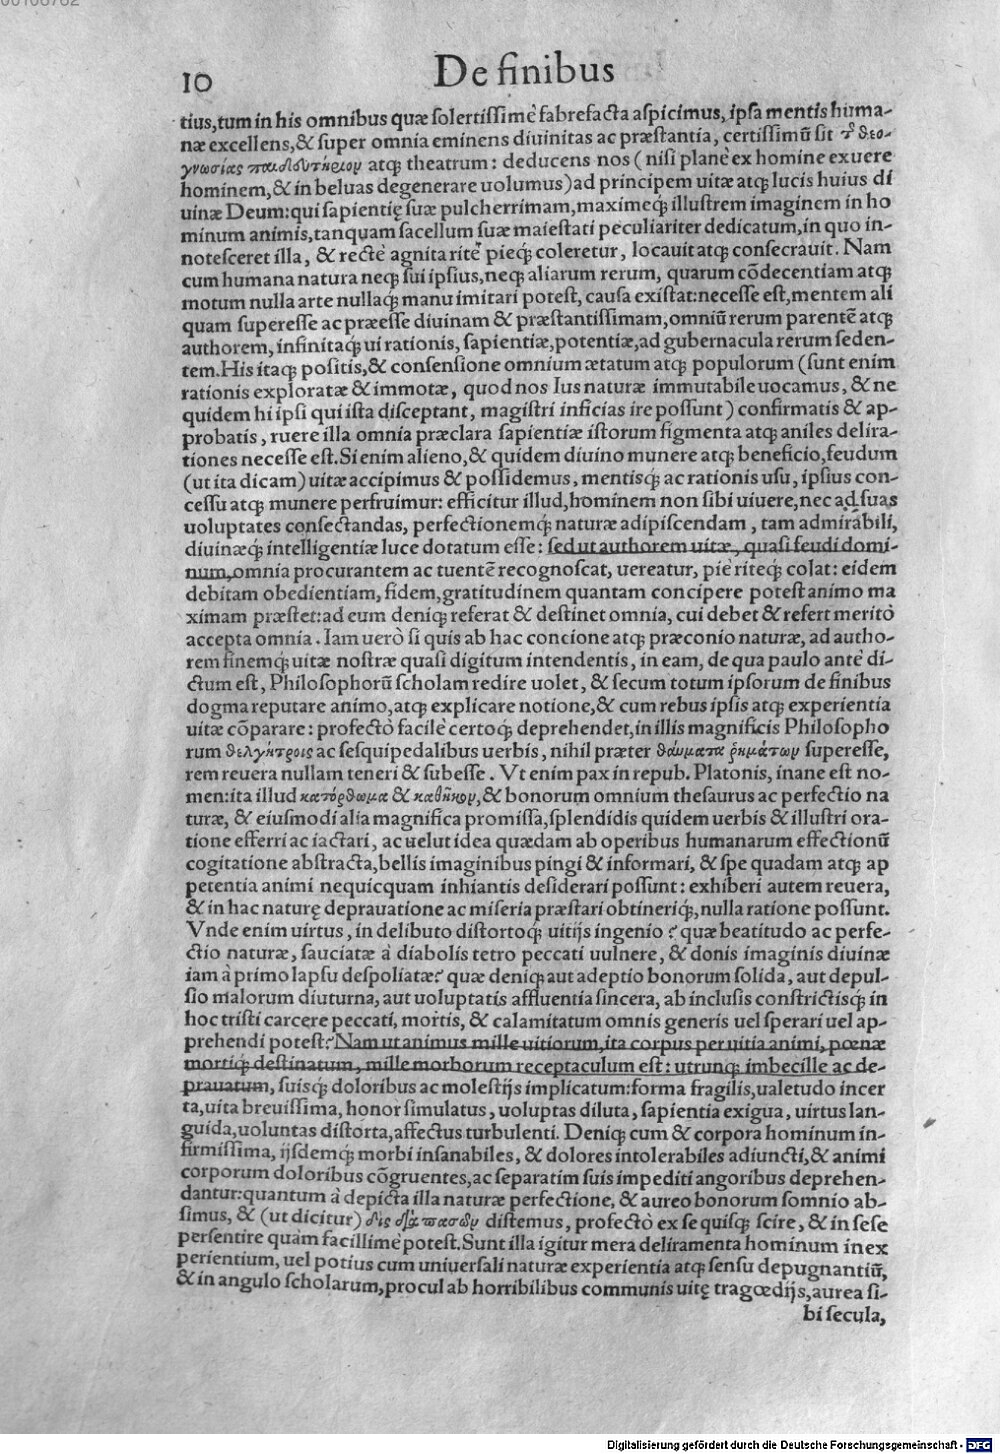 00108762
10
De finibus
tius, tum in his omnibus quæ solertissimè fabrefacta aspicimus, ipsa mentis huma-
næ excellens, & super omnia eminens diuinitas ac præstantia, certissimũ sit τ῀ θεο-
γνωσίας παιδευτήριον atq; theatrum: deducens nos (nisi planè ex homine exuere
hominem, & in beluas degenerare uolumus) ad principem uitæ atq; lucis huius di
uinæ Deum: qui sapientię suæ pulcherrimam, maximeq́; illustrem imaginem in ho
minum animis, tanquam sacellum suæ maiestati peculiariter dedicatum, in quo in-
notesceret illa, & rectè agnita ritè pieq́; coleretur, locauit atq; consecrauit. Nam
cum humana natura neq; sui ipsius, neq; aliarum rerum, quarum cõdecentiam atq;
motum nulla arte nullaq́; manu imitari potest, causa existat: necesse est, mentem ali
quam superesse ac præesse diuinam & præstantissimam, omniũ rerum parentẽ atq;
authorem, infinitaq́; ui rationis, sapientiæ, potentiæ, ad gubernacula rerum seden-
tem. His itaq; positis, & consensione omnium ætatum atq; populorum (sunt enim
rationis exploratæ & immotæ, quod nos Ius naturæ immutabile uocamus, & ne
quidem hi ipsi qui ista disceptant, magistri inficias ire possunt) confirmatis & ap-
probatis, ruere illa omnia præclara sapientiæ istorum figmenta atq; aniles delira-
tiones necesse est. Si enim alieno, & quidem diuino munere atq; beneficio, feudum
(ut ita dicam) uitæ accipimus & possidemus, mentisq́; ac rationis usu, ipsius con-
cessu atq; munere perfruimur: efficitur illud, hominem non sibi uiuere, nec ad suas
uoluptates consectandas, perfectionemq́; naturæ adipiscendam, tam admirabili,
diuinæq́; intelligentiæ luce dotatum esse: sed ut authorem uitæ, quasi feudi domi-
num, omnia procurantem ac tuentẽ recognoscat, uereatur, piè riteq́; colat: eidem
debitam obedientiam, fidem, gratitudinem quantam concipere potest animo ma
ximam præstet: ad eum deniq; referat & destinet omnia, cui debet & refert meritò
accepta omnia. Iam uerò si quis ab hac concione atq; præconio naturæ, ad autho-
rem finemq́; uitæ nostræ quasi digitum intendentis, in eam, de qua paulo antè di-
ctum est, Philosophorũ scholam redire uolet, & secum totum ipsorum de finibus
dogma reputare animo, atq; explicare notione, & cum rebus ipsis atq; experientia
uitæ cõparare: profectò facilè certoq́; deprehendet, in illis magnificis Philosopho
rum θελγήτροις ac sesquipedalibus uerbis, nihil præter θαύματα ῥημάτων superesse,
rem reuera nullam teneri & subesse. Vt enim pax in repub. Platonis, inane est no-
men: ita illud κατόρθωμα & καθῆκον, & bonorum omnium thesaurus ac perfectio na
turæ, & eiusmodi alia magnifica promissa, splendidis quidem uerbis & illustri ora-
tione efferri ac iactari, ac uelut idea quædam ab operibus humanarum effectionũ
cogitatione abstracta, bellis imaginibus pingi & informari, & spe quadam atq; ap
petentia animi nequicquam inhiantis desiderari possunt: exhiberi autem reuera,
& in hac naturę deprauatione ac miseria præstari obtineriq́;, nulla ratione possunt.
Vnde enim uirtus, in delibuto distortoq́; uitijs ingenio? quæ beatitudo ac perfe-
ctio naturæ, sauciatæ à diabolis tetro peccati uulnere, & donis imaginis diuinæ
iam à primo lapsu despoliatæ? quæ deniq; aut adeptio bonorum solida, aut depul-
sio malorum diuturna, aut uoluptatis affluentia sincera, ab inclusis constrictisq́; in
hoc tristi carcere peccati, mortis, & calamitatum omnis generis uel sperari uel ap-
prehendi potest? Nam ut animus mille uitiorum, ita corpus per uitia animi, pœnæ
mortiq́; destinatum, mille morborum receptaculum est: utrunq; imbecille ac de-
prauatum, suisq́; doloribus ac molestijs implicatum: forma fragilis, ualetudo incer
ta, uita breuissima, honor simulatus, uoluptas diluta, sapientia exigua, uirtus lan-
guida, uoluntas distorta, affectus turbulenti. Deniq; cum & corpora hominum in-
firmissima, ijsdemq́; morbi insanabiles, & dolores intolerabiles adiuncti, & animi
corporum doloribus cõgruentes, ac separatim suis impediti angoribus deprehen-
dantur: quantum à depicta illa naturæ perfectione, & aureo bonorum somnio ab-
simus, & (ut dicitur) δὶς διὰ πασῶν distemus, profectò ex se quisq; scire, & in sese
persentire quàm facillimè potest. Sunt illa igitur mera deliramenta hominum inex
perientium, uel potius cum uniuersali naturæ experientia atq; sensu depugnantiũ,
& in angulo scholarum, procul ab horribilibus communis uitę tragœdijs, aurea si-
bi secula,
Digitalisierung gefördert durch die Deutsche Forschungsgemeinschaft - DFG